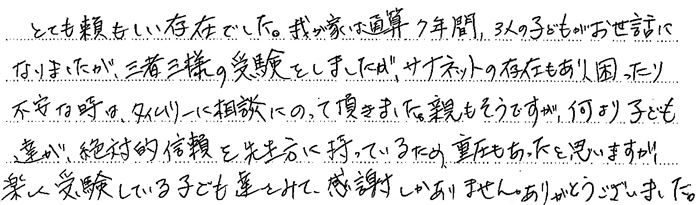 とても頼もしい存在でした。我が家は通算7年間、3人の子どもがお世話に
なりましたが、三者三様の受験をしましたが、サナネットの存在もあり、困ったり
不安な時は、タイムリーに相談にのって頂きました。親もそうですが、何より子ども
達が、絶対的信頼を先生方に持っているため、重圧もあったと思いますが、
楽しく受験している子ども達をみて、感謝しかありません。ありがとうございました。